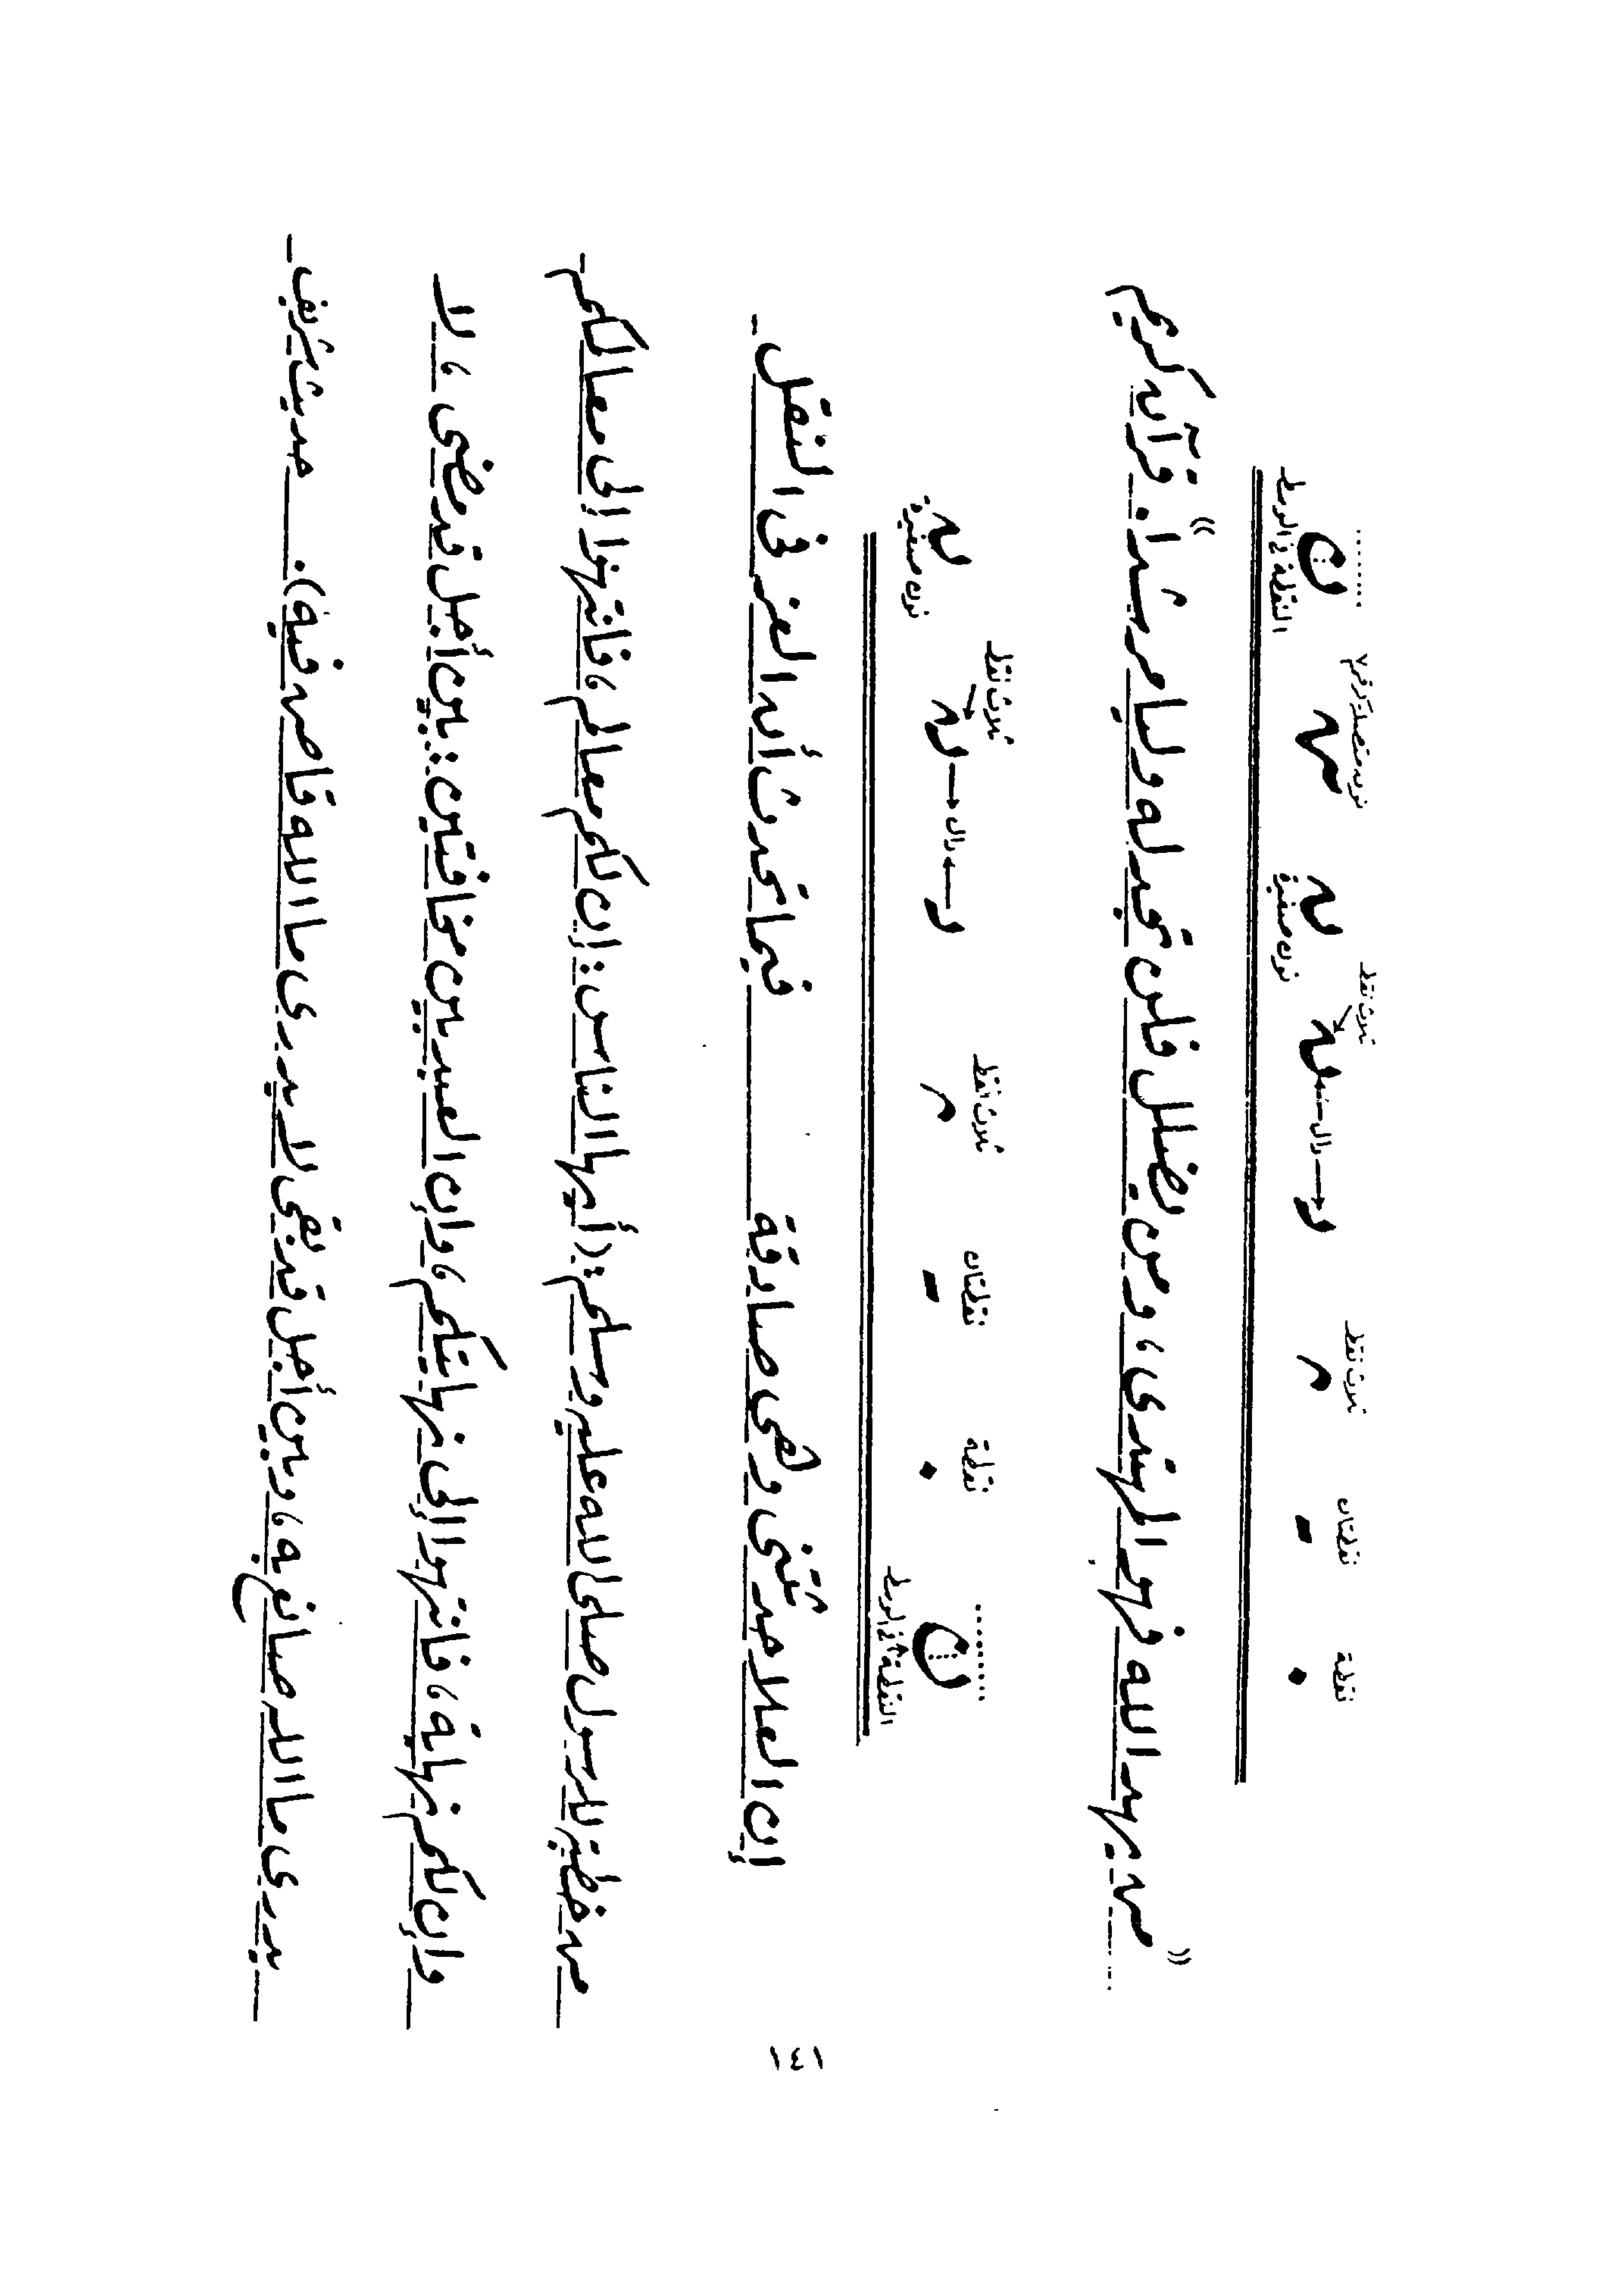 نقطة نقطتان ثلاث نقط ثلاث نقط نون متصلة كرقم ٧ ......
دال ن
نون صغيرة النقطة في الوسط
« من يهد الله فهو المهتدى ، ومن يضلل فلن تجد له وليا مرشداً » . قرآن كريم
نقطة نقطتان ثلاث نقط ثلاث نقط
ن دال
النقطة في الوسط نون صغيرة
إن العلا حدثتنى وهى صادقة فيما تحدث أن العز فى النقل
من خطبة للرسول صلى الله عليه وسلم : (أيها الناس : إن لكم معالم ، فانتهوا إلى معالمكم
وإن لكم نهاية ، فانتهوا إلى نهايتكم ، وإن العبد بين مخافتين : بين أجل قد مضى ، لا
يدرى ما الله صانع به ، وبين أجل قد بقى لا يدرى ما الله قاض فيه) . حديث شريف
١٤١